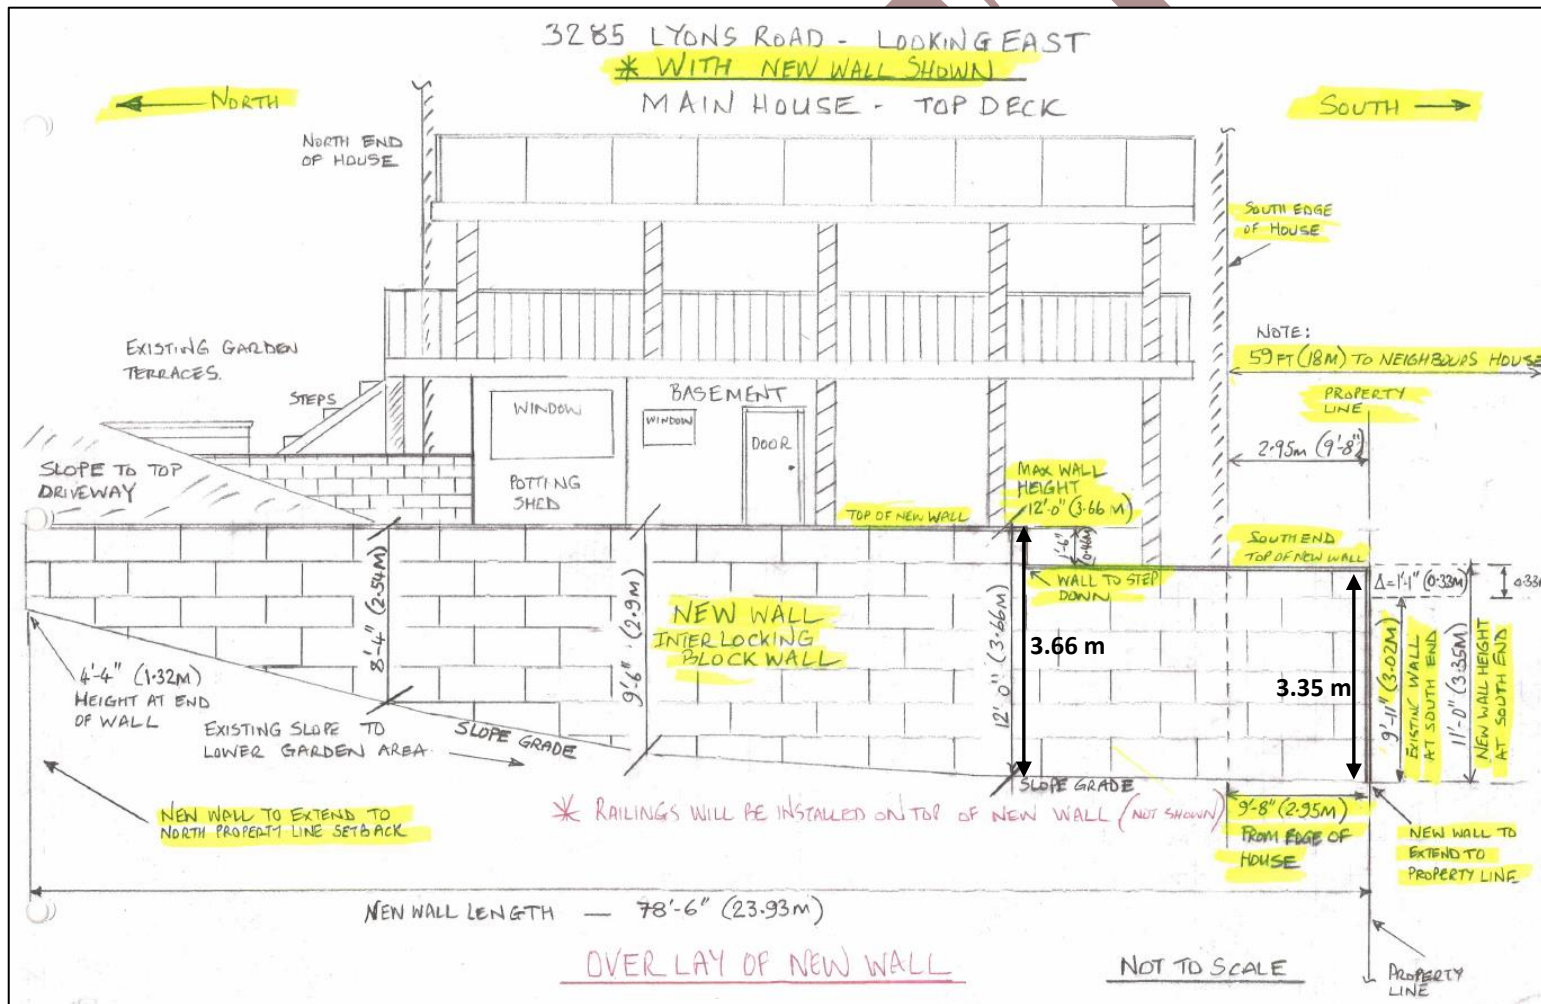 3285 LYONS ROAD - LOOKING EAST
* WITH NEW WALL SHOWN
MAIN HOUSE - TOP DECK
NORTH
SOUTH
NORTH END
OF HOUSE
SOUTH EDGE
OF HOUSE
NOTE:
59 FT (18M) TO NEIGHBOURS HOUSE
PROPERTY
LINE
2.95m (9'-8")
EXISTING GARDEN
TERRACES.
STEPS
WINDOW
BASEMENT
WINDOW
DOOR
POTTING
SHED
SLOPE TO TOP
DRIVEWAY
MAX WALL
HEIGHT
12'-0" (3.66 M)
TOP OF NEW WALL
1'-6"
(0.46M)
SOUTH END
TOP OF NEW WALL
WALL TO STEP
DOWN
Δ=1'-1" (0.33M)
0.33M
8'-4" (2.54M)
9'-6" (2.9M)
NEW WALL
INTERLOCKING
BLOCK WALL
12'-0" (3.66M)
3.66 m
3.35 m
9'-11" (3.02M)
EXISTING WALL
AT SOUTH END
11'-0" (3.35M)
NEW WALL HEIGHT
AT SOUTH END
4'-4" (1.32M)
HEIGHT AT END
OF WALL
EXISTING SLOPE TO
LOWER GARDEN AREA.
SLOPE GRADE
SLOPE GRADE
NEW WALL TO EXTEND TO
NORTH PROPERTY LINE SETBACK
* RAILINGS WILL BE INSTALLED ON TOP OF NEW WALL (NOT SHOWN)
9'-8" (2.95M)
FROM EDGE OF
HOUSE
NEW WALL TO
EXTEND TO
PROPERTY LINE
NEW WALL LENGTH — 78'-6" (23.93M)
OVERLAY OF NEW WALL
NOT TO SCALE
PROPERTY
LINE